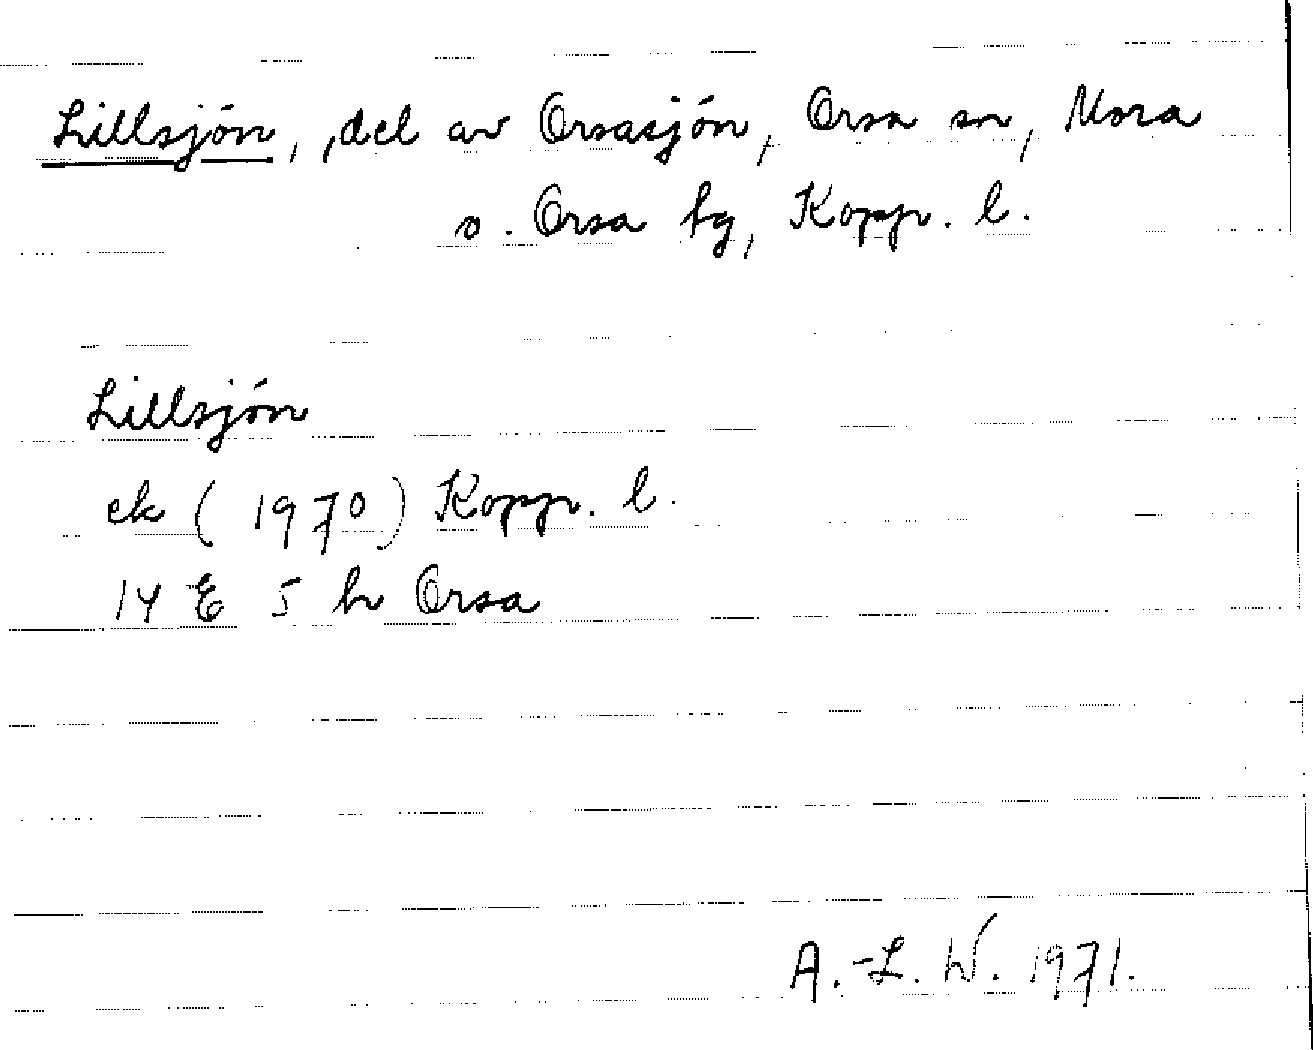 Lillsjön, del av Orsasjön, Orsa sn, Mora
o. Orsa tg, Kopp. l.
Lillsjön
ek (1970) Kopp. l.
14 E 5 h Orsa
A.-L. W. 1971.